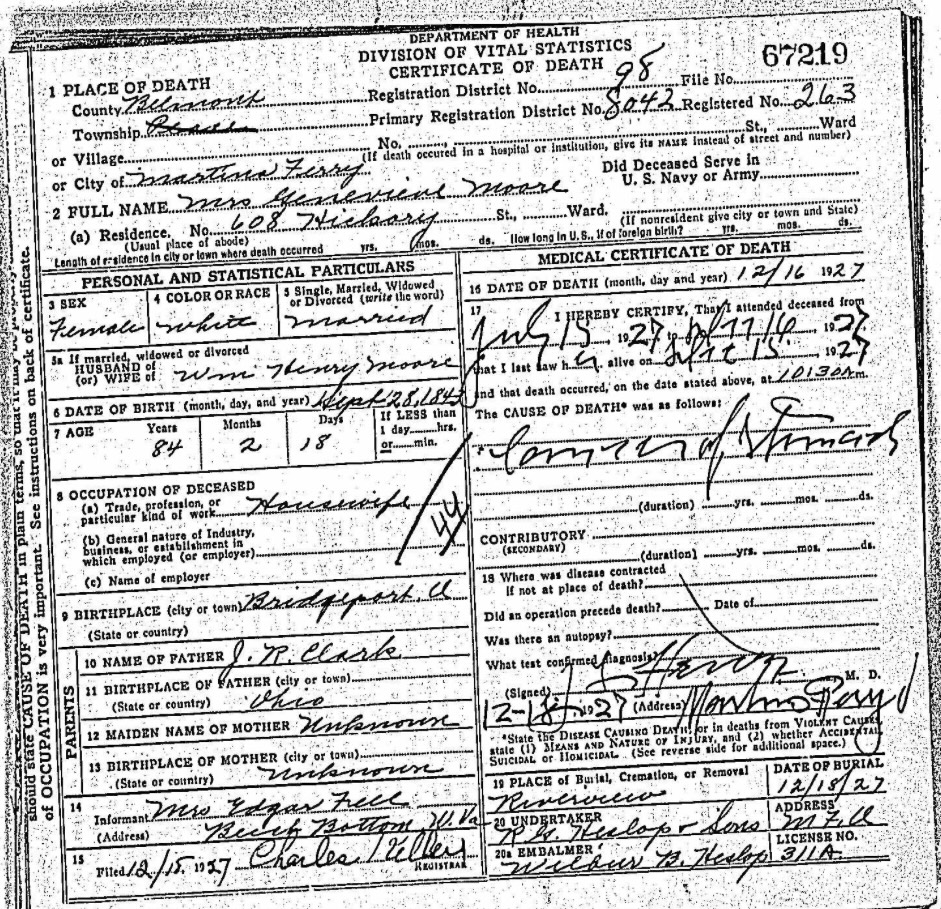 DEPARTMENT OF HEALTH
DIVISION OF VITAL STATISTICS
CERTIFICATE OF DEATH
67219
1 PLACE OF DEATH
County Belmont
Registration District No. 98 File No.
Township Pease
Primary Registration District No. 8042 Registered No. 263
or Village No. St., Ward
(If death occured in a hospital or institution, give its NAME instead of street and number)
or City of Martins Ferry
Did Deceased Serve in
U. S. Navy or Army
2 FULL NAME Mrs Genevieve Moore
(a) Residence. No. 608 Hickory St., Ward.
(Usual place of abode) (If nonresident give city or town and State)
Length of residence in city or town where death occurred yrs. mos. ds. How long in U.S., if of foreign birth? yrs. mos. ds.
PERSONAL AND STATISTICAL PARTICULARS
3 SEX
Female
4 COLOR OR RACE
White
5 Single, Married, Widowed
or Divorced (write the word)
Married
5a If married, widowed or divorced
HUSBAND of
(or) WIFE of Wm Henry Moore
6 DATE OF BIRTH (month, day, and year) Sept 28, 1843
7 AGE Years Months Days If LESS than
1 day hrs.
or min.
84 2 18
8 OCCUPATION OF DECEASED
(a) Trade, profession, or
particular kind of work Housewife
(b) General nature of Industry,
business, or establishment in
which employed (or employer)
(c) Name of employer
44
9 BIRTHPLACE (city or town) Bridgeport, O
(State or country)
PARENTS
10 NAME OF FATHER J. R. Clark
11 BIRTHPLACE OF FATHER (city or town)
(State or country) Ohio
12 MAIDEN NAME OF MOTHER Unknown
13 BIRTHPLACE OF MOTHER (city or town)
(State or country) Unknown
14
Informant Mrs Edgar Fell
(Address) Beech Bottom W. Va
15
Filed 12/15, 1927 Charles
REGISTRAR
MEDICAL CERTIFICATE OF DEATH
16 DATE OF DEATH (month, day and year) 12/16 1927
17 I HEREBY CERTIFY, That I attended deceased from
July 15, 1927, 16, 1927
that I last saw her alive on 15, 1927
and that death occurred, on the date stated above, at 10:30 A m.
The CAUSE OF DEATH* was as follows:
of Stomach
(duration) yrs. mos. ds.
CONTRIBUTORY
(SECONDARY)
(duration) yrs. mos. ds.
18 Where was disease contracted
if not at place of death?
Did an operation precede death? Date of
Was there an autopsy?
What test confirmed diagnosis?
(Signed) M. D.
12-18, 1927 (Address) Martins Ferry O
*State the DISEASE CAUSING DEATH, or in deaths from VIOLENT CAUSES,
state (1) MEANS AND NATURE OF INJURY, and (2) whether ACCIDENTAL,
SUICIDAL or HOMICIDAL. (See reverse side for additional space.)
19 PLACE of Burial, Cremation, or Removal
Riverview
DATE OF BURIAL
12/18/27
20 UNDERTAKER
R. G. Heslop & Sons
ADDRESS
20a EMBALMER
Wilbur B. Heslop
LICENSE NO.
311A.
should state CAUSE OF DEATH in plain terms, so that it may be properly
of OCCUPATION is very important. See instructions on back of certificate.